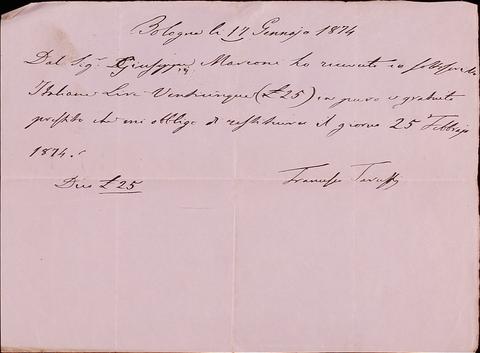 Bologna li 17 Gennajo 1874
Dal Sig.r Giuseppe Marconi ho ricevuto io sottoscritto
Italiane Lire Venticinque (£25) in puro e gratuito
prestito che mi obbligo di restituire il giorno 25 Febbrajo
1874.
Dico £25
Francesco